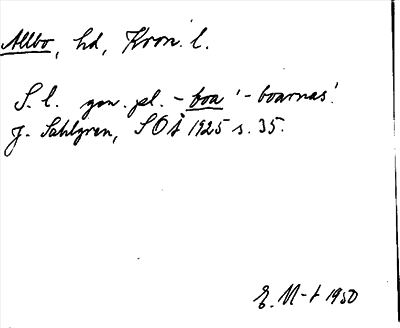 Allbo, hd, Kron. l.
S. l. gen. pl. -boa '-boarnas'.
J. Sahlgren, SOÅ 1925 s. 35.
E. M-t 1950